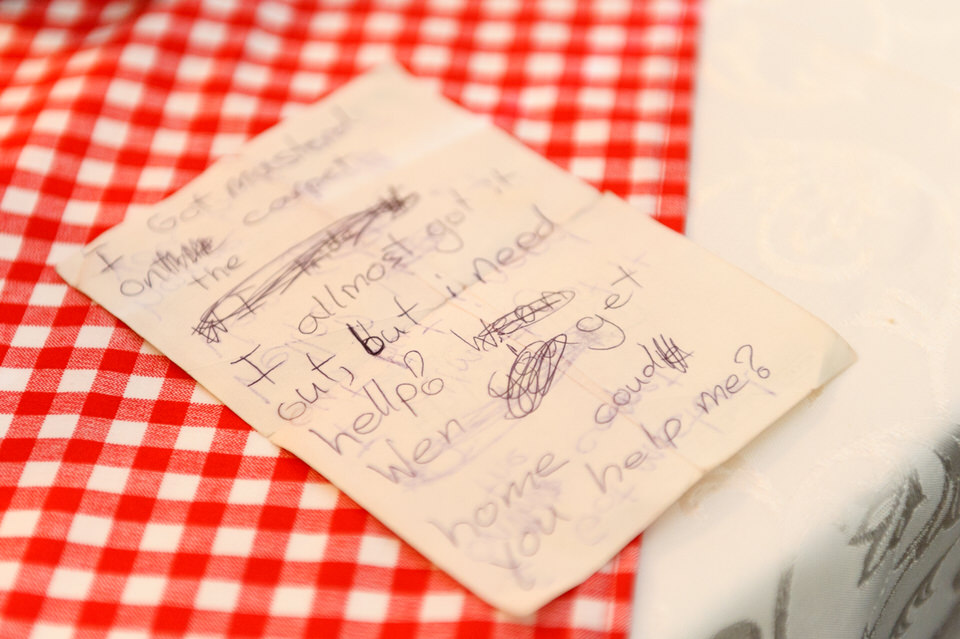 I Got mustead
on
the carpet
I allmost got it
out, but i need
hellp
wen get
home coud
you help me?